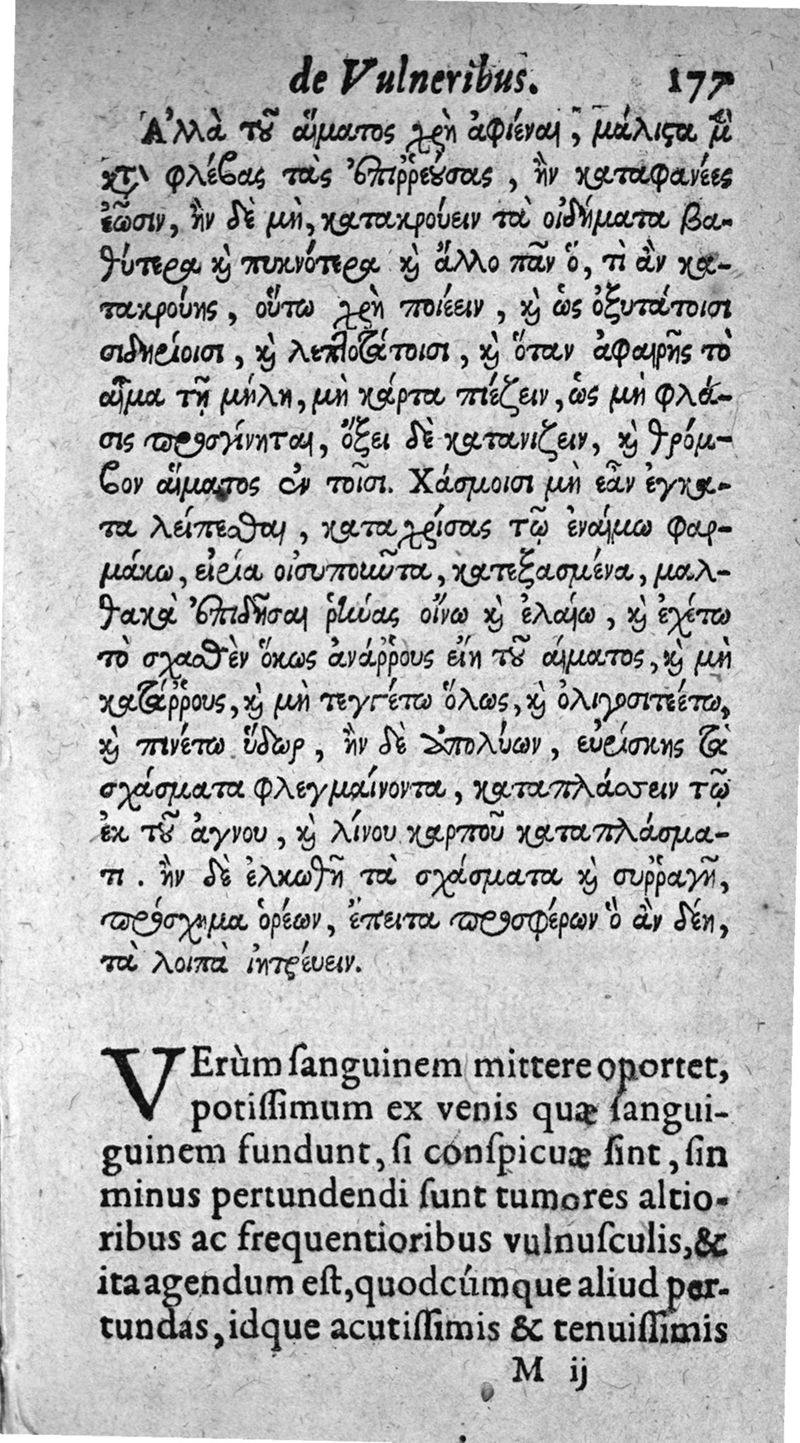 de Vulneribus. 177
Ἀλλὰ τοῦ αἵματος χρὴ ἀφιέναι, μάλιςα μὲν
κτ' φλέβας τὰς ἐπιῤῥεούσας, ἢν καταφανέες
ἐῶσιν, ἢν δὲ μὴ, κατακρούειν τὰ οἰδήματα βα-
θύτερα καὶ πυκνότερα καὶ ἄλλο πᾶν ὅ, τὶ ἂν κα-
τακρούῃς, οὕτω χρὴ ποιέειν, καὶ ὡς ὀξυτάτοισι
σιδηρίοισι, καὶ λεπτοτάτοισι, καὶ ὅταν ἀφαιρῇς τὸ
αἷμα τῇ μήλῃ, μὴ κάρτα πιέζειν, ὡς μὴ φλά-
σις προσγίνηται, ὄξει δὲ κατανίζειν, καὶ θρόμ-
βον αἵματος ἐν τοῖσι. Χάσμοισι μὴ ἐᾶν ἐγκα-
τα λείπεσθαι, καταχρίσας τῷ ἐναίμω φαρ-
μάκω, εἰρία οἰσυπιῶντα, κατεξασμένα, μαλ-
θακὰ ἐπιδῆσαι ῥήνας οἴνω καὶ ἐλαίω, καὶ ἐχέτω
τὸ σχασθὲν ὅκως ἀνάῤῥους εἴη τοῦ αἵματος, καὶ μὴ
κατάῤῥους, καὶ μὴ τεγγέτω ὅλως, καὶ ὀλιγοσιτεέτω,
καὶ πινέτω ὕδωρ, ἢν δὲ ἀπολύων, εὑρίσκης τὰ
σχάσματα φλεγμαίνοντα, καταπλάσσειν τῷ
ἐκ τοῦ ἄγνου, καὶ λίνου καρποῦ καταπλάσμα-
τι. ἢν δὲ ἑλκωθῇ τὰ σχάσματα καὶ συῤῥαγῇ,
πρόσχημα ὁρέων, ἔπειτα προσφέρων ὃ ἂν δέῃ,
τὰ λοιπὰ ἰητρεύειν.
VErùm ſanguinem mittere oportet,
potiſſimum ex venis quæ ſangui-
guinem fundunt, ſi conſpicuæ ſint, ſin
minus pertundendi ſunt tumores altio-
ribus ac frequentioribus vulnuſculis, &
ita agendum eſt, quodcúmque aliud per-
tundas, idque acutiſſimis & tenuiſſimis
M ij